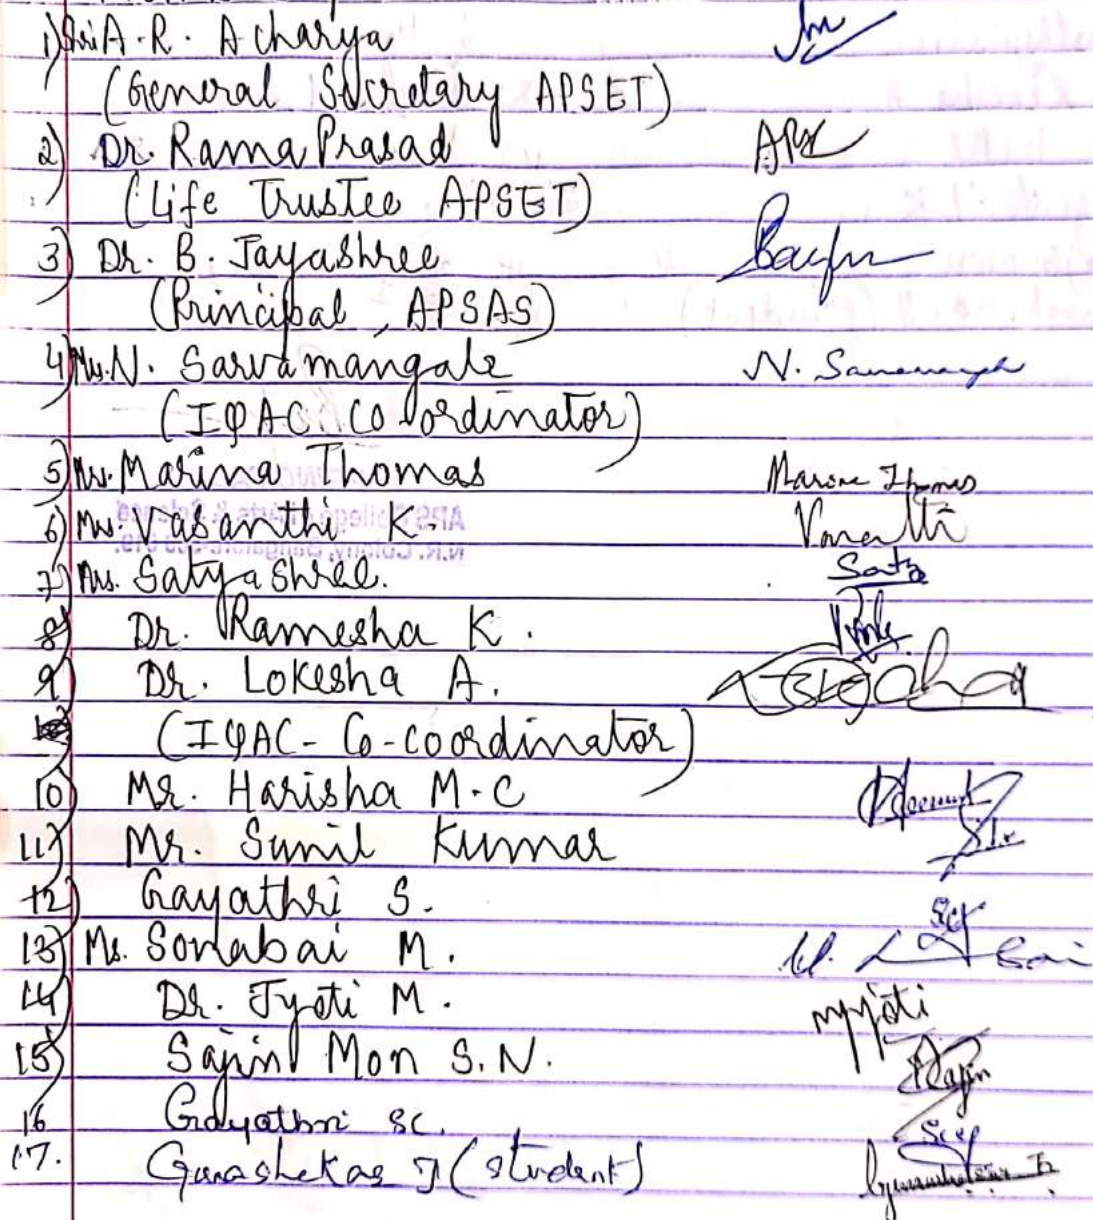 1) Sri A. R. Acharya
(General Secretary APSET)
2) Dr. Rama Prasad
(Life Trustee APSET)
3) Dr. B. Jayashree
(Principal, APSAS)
4) Mrs. N. Sarvamangala N.
(IQAC Co-ordinator)
5) Mrs. Marina Thomas Marina Thomas
6) Mrs. Vasanthi K.
7) Mrs. Satyashree.
8) Dr. Ramesha K.
9) Dr. Lokesha A.
(IQAC - Co-coordinator)
10) Mr. Harisha M.C
11) Mr. Sunil Kumar
12) Gayathri S.
13) Ms. Sonabai M.
14) Dr. Jyoti M.
15) Sajin Mon S.N.
16 Gayathri SC.
17. Gurashekar J (Student)